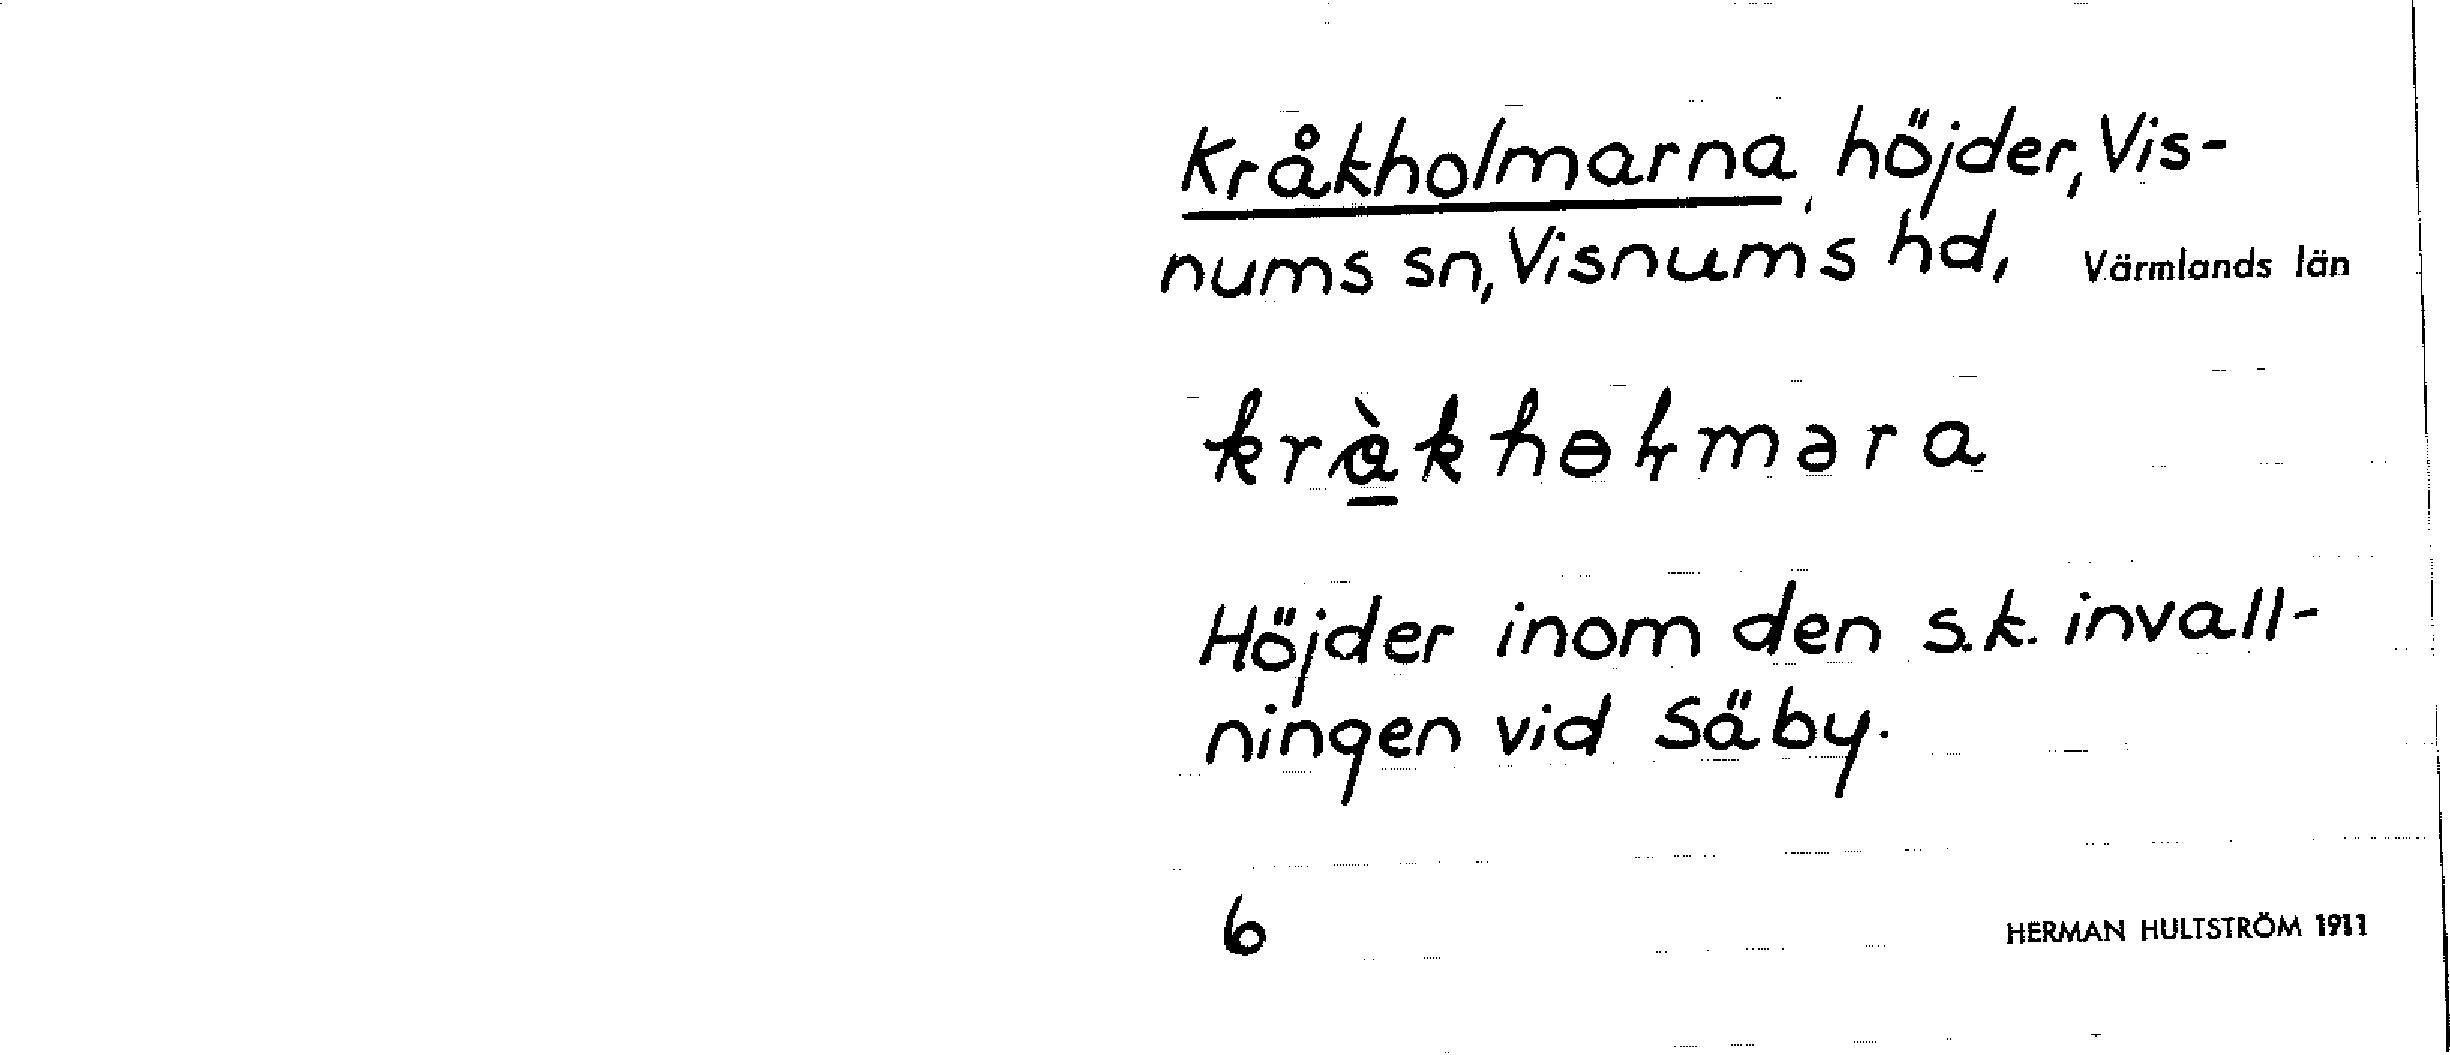 Kråkholmarna, höjder, Vis-
nums sn, Visnums hd, Värmlands län
kràkhɵɽməra
Höjder inom den s.k. invall-
ningen vid Säby.
6 HERMAN HULTSTRÖM 1911